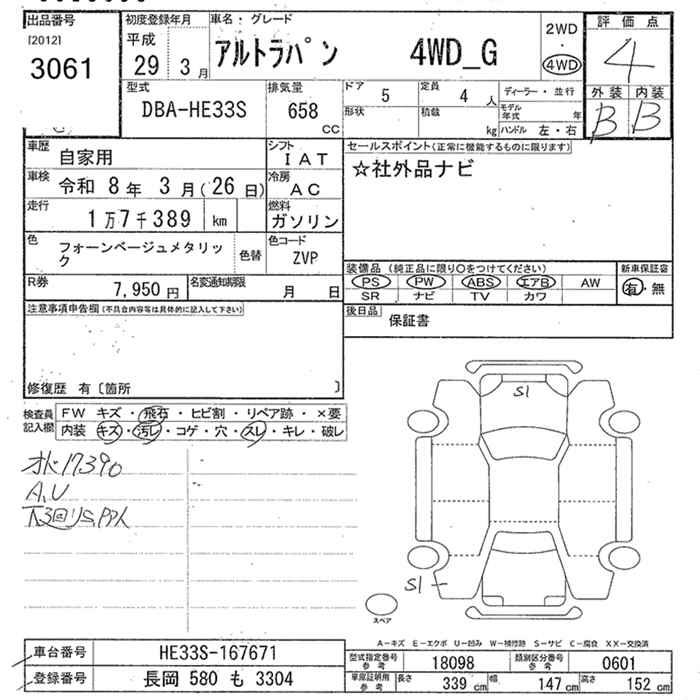 出品番号
[2012]
3061
初度登録年月
平成
29 3月
車名・グレード
アルトラパン 4WD_G
2WD
・
4WD
評価点
4
外装 内装
B B
型式
DBA-HE33S
排気量
658
CC
ドア
5
定員
4 人
形状
積載
kg
ディーラー・並行
モデル年式 年
ハンドル 左・右
車歴
自家用
シフト
IAT
車検
令和 8年 3月(26日)
冷房
AC
走行
1万7千389 km
燃料
ガソリン
色
フォーンベージュメタリック
色替
色コード
ZVP
R券
7,950 円
名変通知期限
月 日
セールスポイント(正常に機能するものに限ります)
☆社外品ナビ
装備品 (純正品に限り○をつけてください)
PS PW ABS エアB AW
SR ナビ TV カワ
新車保証書
有・無
後日品
保証書
注意事項申告欄(不具合内容等は具体的に記入して下さい)
修復歴 有〔箇所 〕
検査員
記入欄
FW キズ・飛石・ヒビ割・リペア跡・×要
内装 キズ・汚レ・コゲ・穴・スレ・キレ・破レ
オド17390
A,U
下3回りS,PPペ
S1
S1
スペア
A-キズ E-エクボ U-凹み W-補修跡 S-サビ C-腐食 XX-交換済
車台番号
HE33S-167671
登録番号
長岡 580 も 3304
型式指定番号
参考
18098
類別区分番号
参考
0601
車庫証明用
参考
長さ
339 cm
幅
147 cm
高さ
152 cm